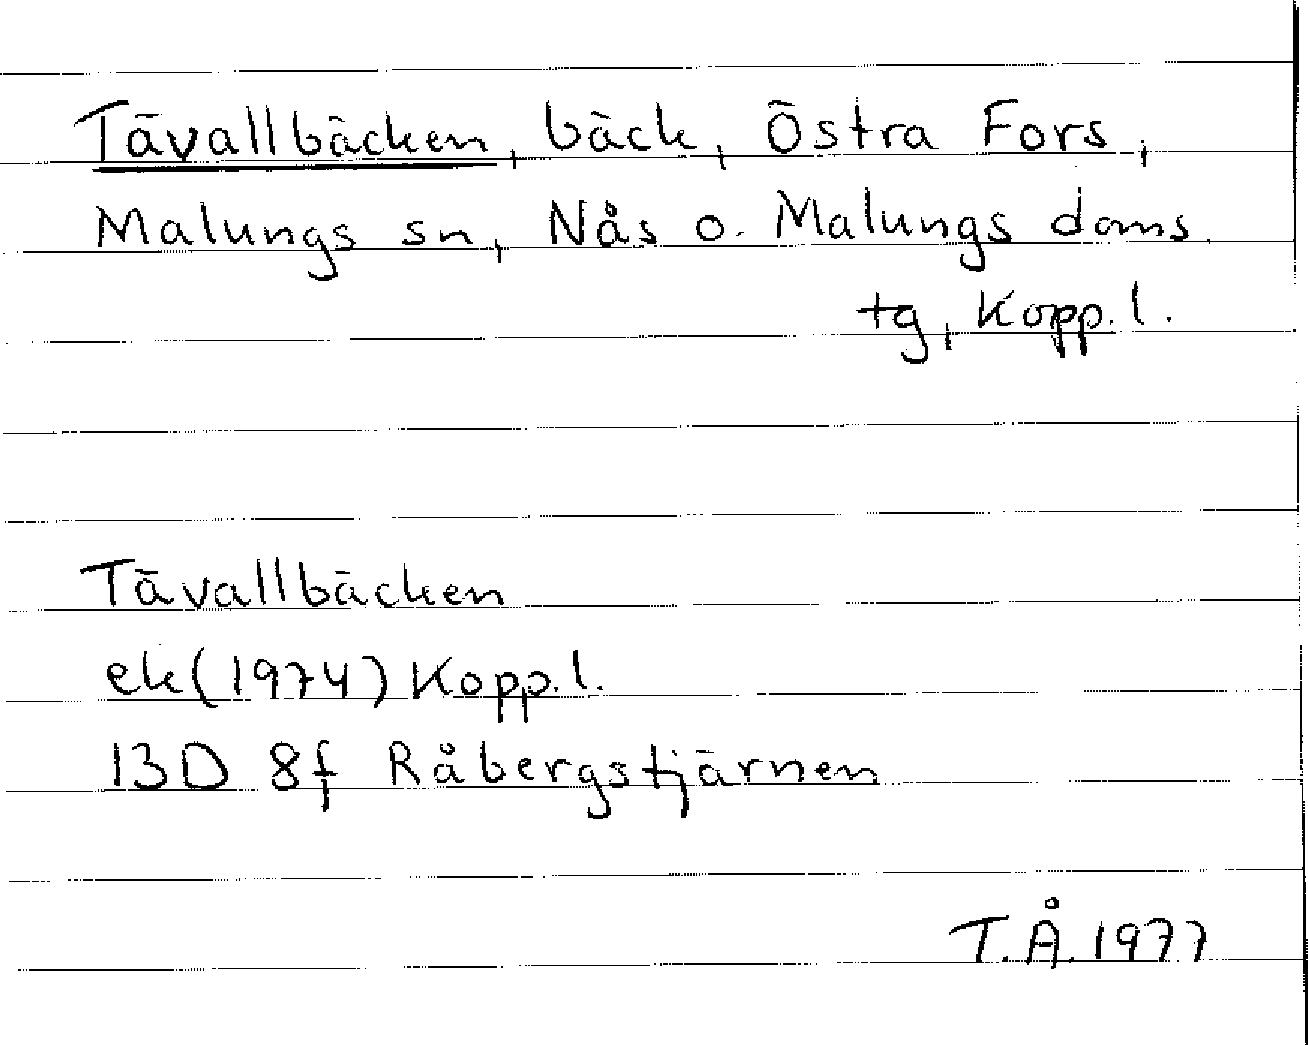 Tävallbäcken, bäck, Östra Fors,
Malungs sn, Nås o. Malungs doms.
tg, Kopp. l.
Tävallbäcken
ek (1974) Kopp. l.
13D 8f Råbergstjärnen
T.Å. 1977